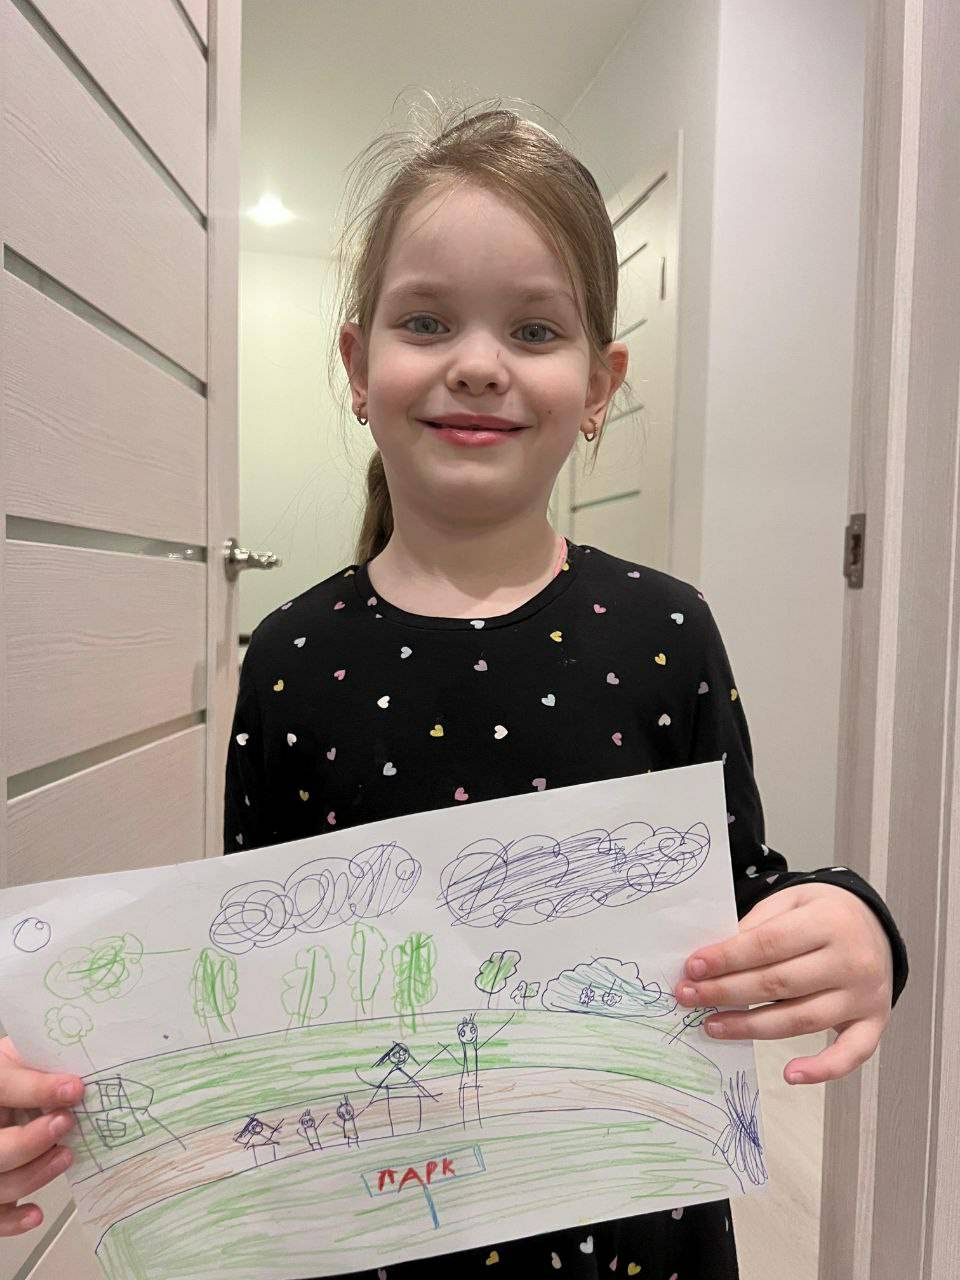 ПАРК